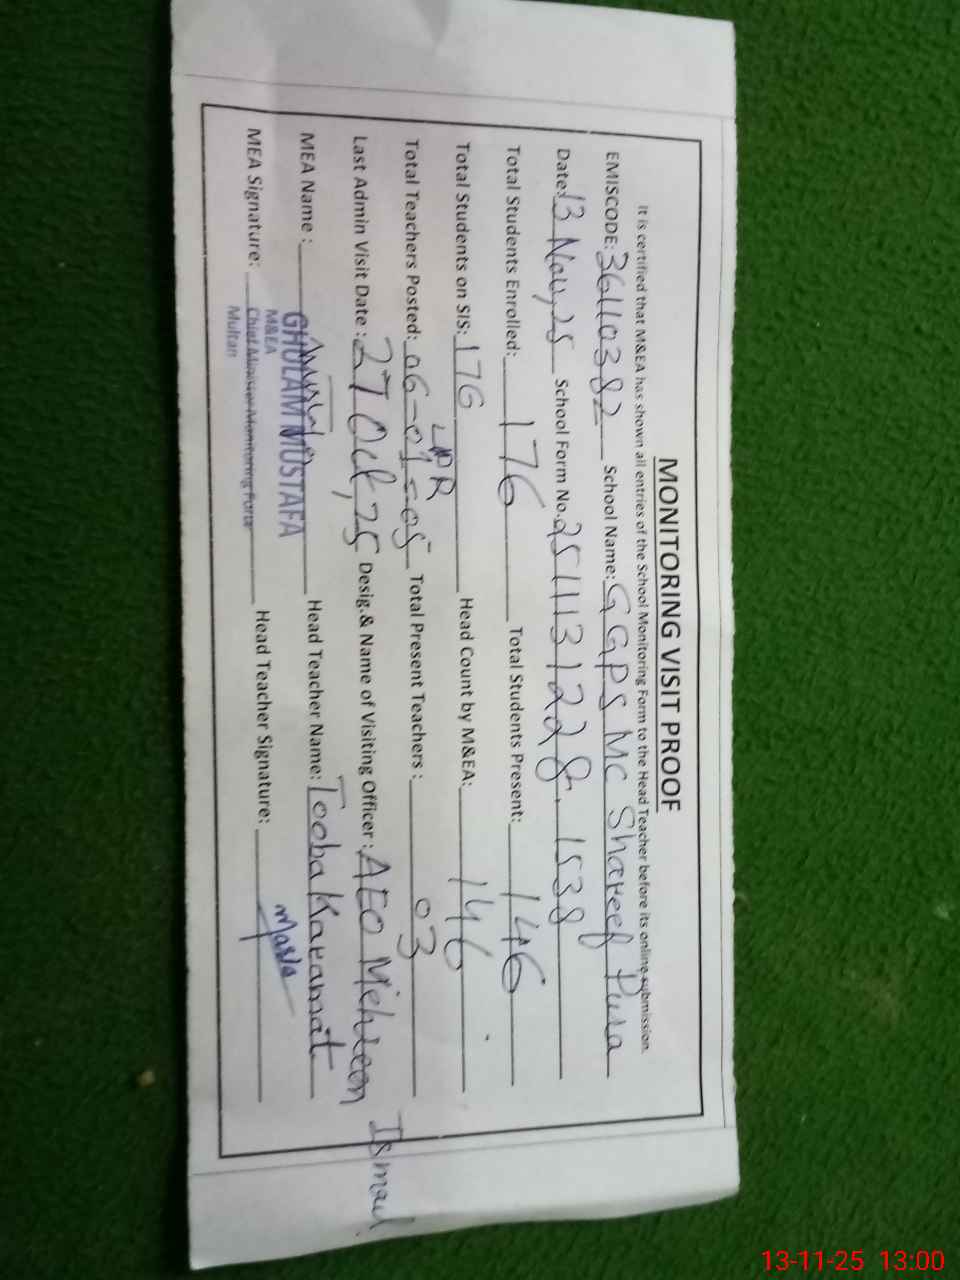 MONITORING VISIT PROOF
It is certified that M&EA has shown all entries of the School Monitoring Form to the Head Teacher before its online submission.
EMISCODE: 36110382 School Name: GGPS MC Shareef Pura
Date: 13 Nov, 25 School Form No. 2511131228, 1538
Total Students Enrolled: 176 Total Students Present: 146
Total Students on SIS: 176 Head Count by M&EA: 146
LPR
Total Teachers Posted: 06-01=05 Total Present Teachers: 03
Last Admin Visit Date: 27 Oct, 25 Desig.& Name of Visiting Officer: AEO Mehreen Ismail
MEA Name: GHULAM MUSTAFA Head Teacher Name: Tooba Karamat
M&EA
MEA Signature: Chief Minister Monitoring Force Head Teacher Signature:
Multan
13-11-25 13:00